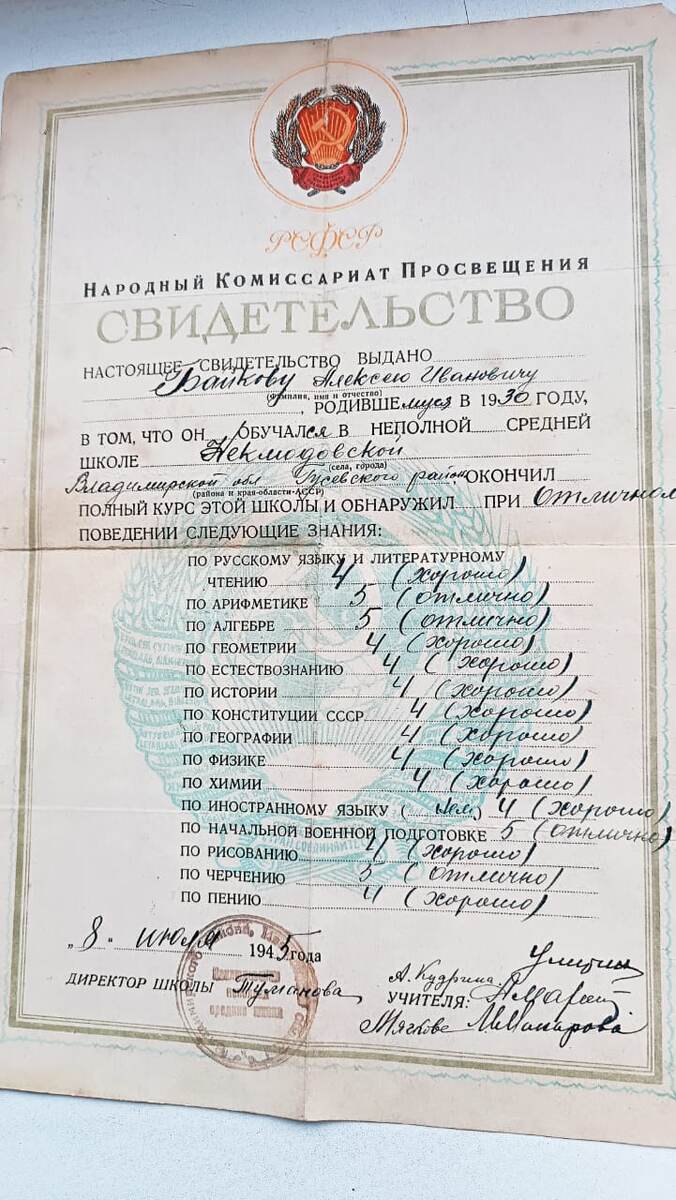 РСФСР
НАРОДНЫЙ КОМИССАРИАТ ПРОСВЕЩЕНИЯ
СВИДЕТЕЛЬСТВО
НАСТОЯЩЕЕ СВИДЕТЕЛЬСТВО ВЫДАНО
Байкову Алексею Ивановичу
(фамилия, имя и отчество)
, РОДИВШЕмуся В 1930 ГОДУ,
В ТОМ, ЧТО ОН ОБУЧАЛся В НЕПОЛНОЙ СРЕДНЕЙ
ШКОЛЕ Некмодовской
(села, города)
Владимирской обл Гусевского район ОКОНЧИЛ
(района и края-области-АССР)
ПОЛНЫЙ КУРС ЭТОЙ ШКОЛЫ И ОБНАРУЖИЛ ПРИ отличном
ПОВЕДЕНИИ СЛЕДУЮЩИЕ ЗНАНИЯ:
ПО РУССКОМУ ЯЗЫКУ И ЛИТЕРАТУРНОМУ
ЧТЕНИЮ 4 (хорошо)
ПО АРИФМЕТИКЕ 5 (отлично)
ПО АЛГЕБРЕ 5 (отлично)
ПО ГЕОМЕТРИИ 4 (хорошо)
ПО ЕСТЕСТВОЗНАНИЮ 4 (хорошо)
ПО ИСТОРИИ 4 (хорошо)
ПО КОНСТИТУЦИИ СССР 4 (хорошо)
ПО ГЕОГРАФИИ 4 (хорошо)
ПО ФИЗИКЕ 4 (хорошо)
ПО ХИМИИ 4 (хорошо)
ПО ИНОСТРАННОМУ ЯЗЫКУ (нем) 4 (хорошо)
ПО НАЧАЛЬНОЙ ВОЕННОЙ ПОДГОТОВКЕ 5 (отлично)
ПО РИСОВАНИЮ 4 (хорошо)
ПО ЧЕРЧЕНИЮ 5 (отлично)
ПО ПЕНИЮ 4 (хорошо)
„8" июля 1945 года
ДИРЕКТОР ШКОЛЫ Туманова
А. Кудрина
УЧИТЕЛЯ: